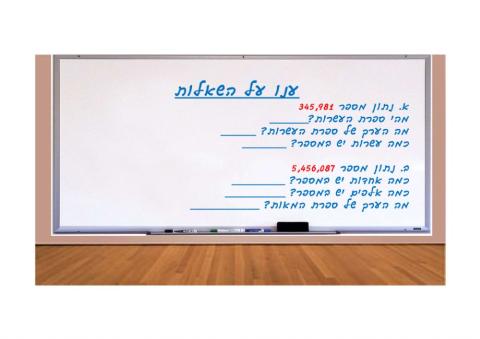 ענו על השאלות
א. נתון מספר 345,981
מהי ספרת העשרות?________
מה הערך של ספרת העשרות? ________
כמה עשרות יש במספר? ________
ב. נתון מספר 5,456,087
כמה אחדות יש במספר? ________
כמה אלפים יש במספר? ________
מה הערך של ספרת המאות? ________